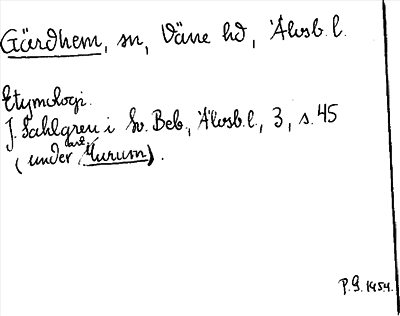 Gärdhem, sn, Väne hd, Älvsb. l.
Etymologi.
J. Sahlgren i Sv. Beb., Älvsb. l., 3, s. 45
(under art. Murum).
P.G. 1954.